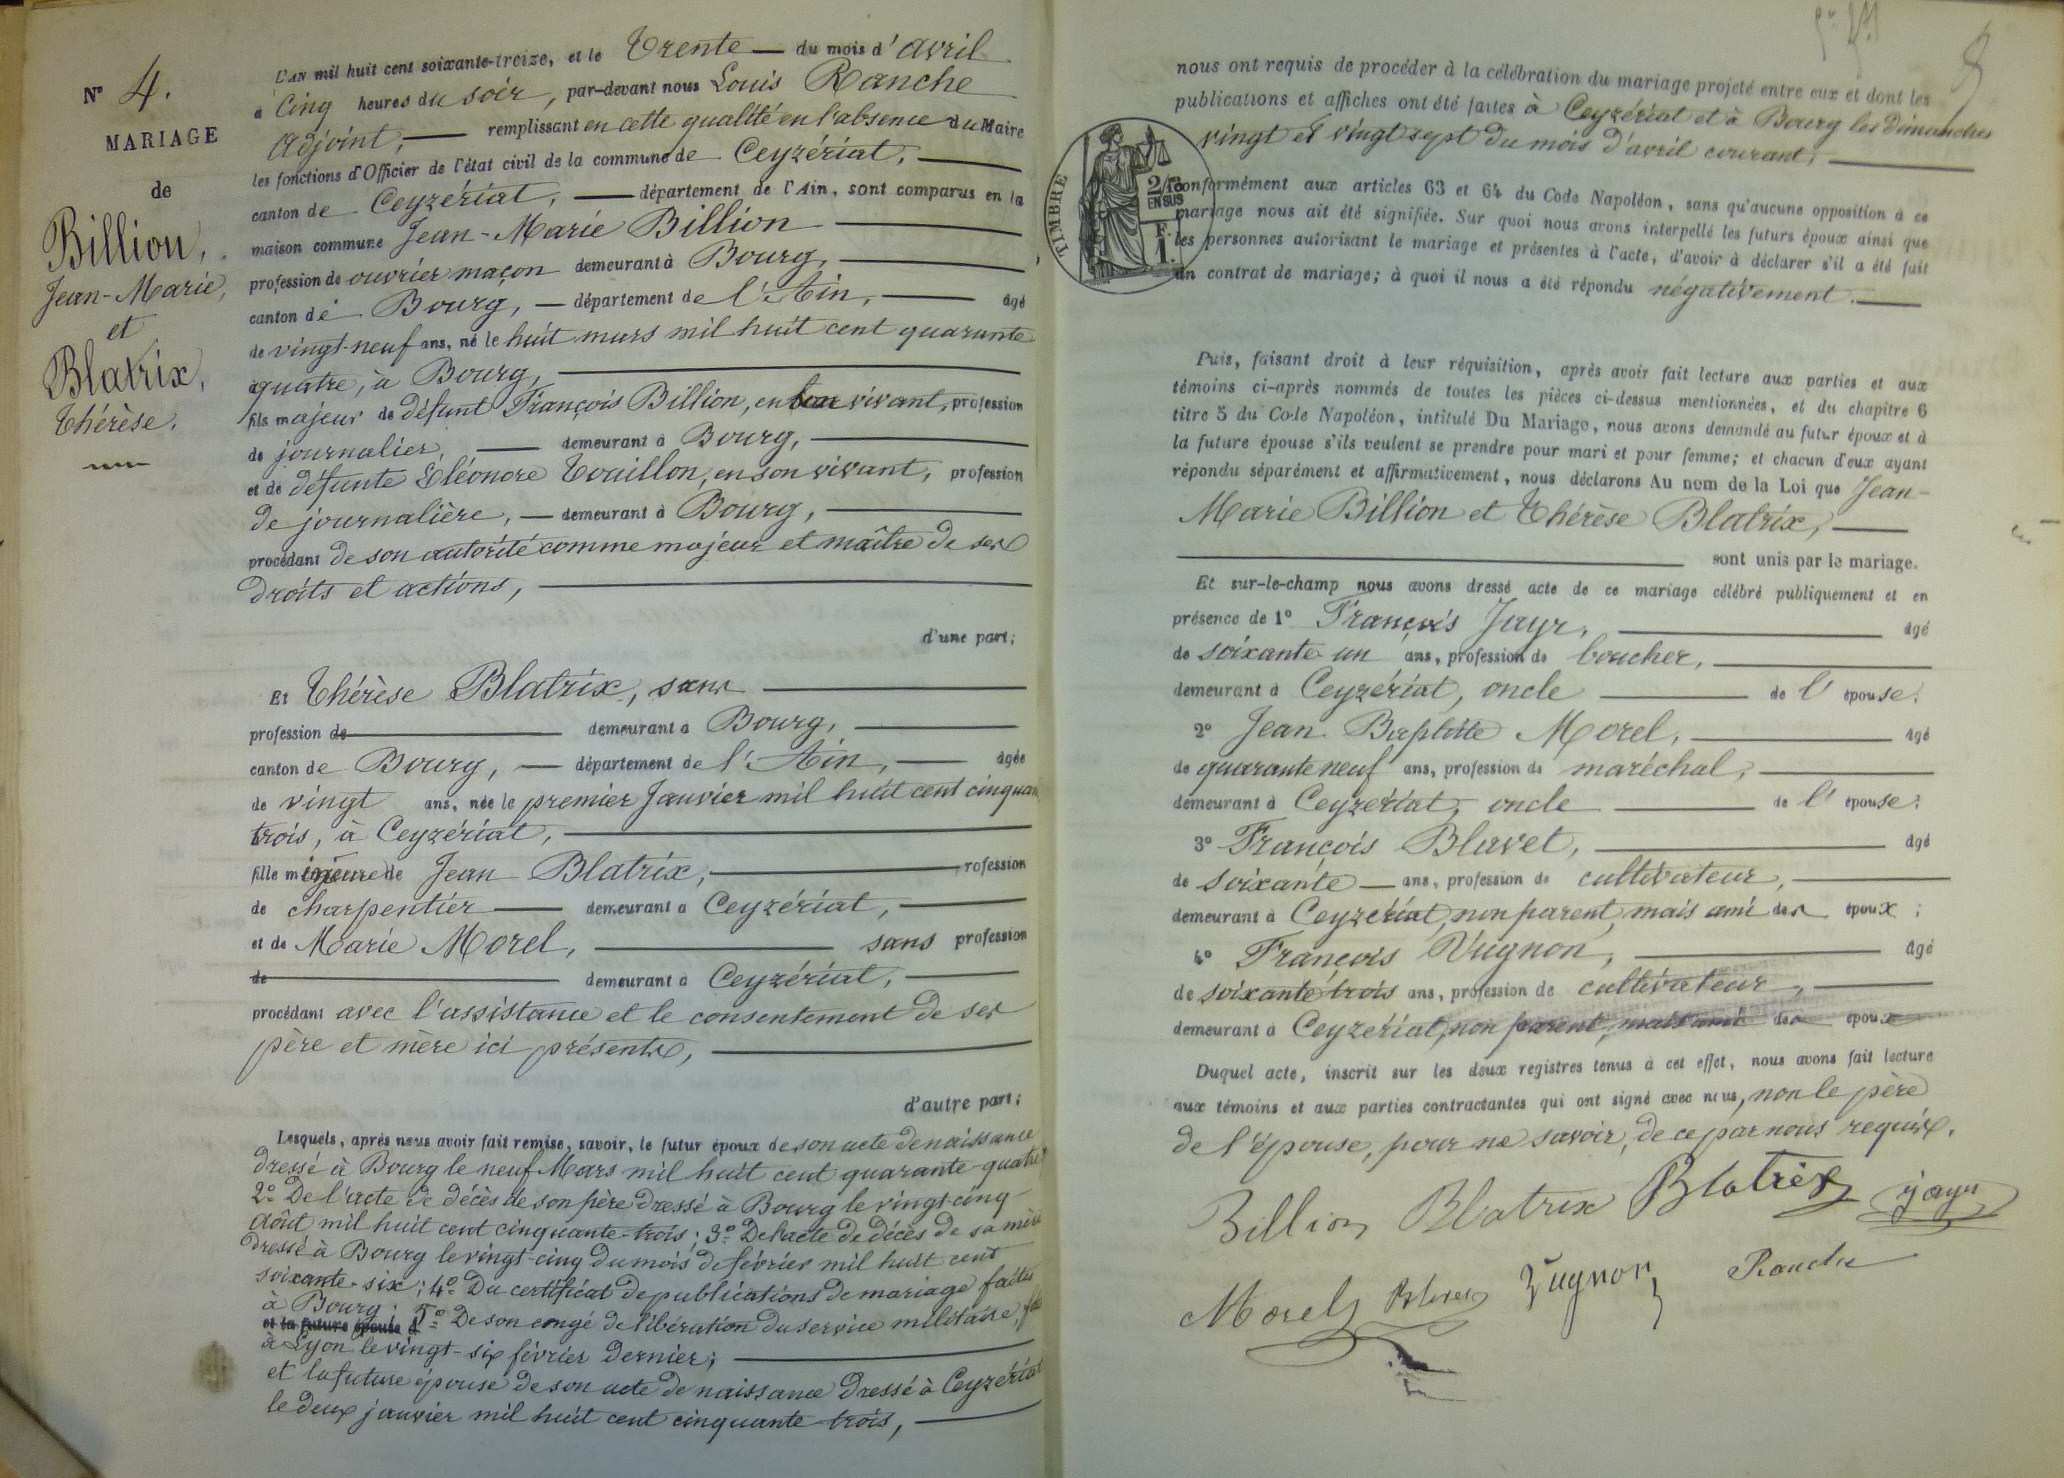 Nº 4.
MARIAGE
de
Billion,
Jean-Marie,
et
Blatrix,
Thérèse.
L'AN mil huit cent soixante-treize, et le Trente du mois d'avril
à Cinq heures du soir, par-devant nous Louis Ranche
Adjoint, remplissant en cette qualité en l'absence du Maire
les fonctions d'Officier de l'état civil de la commune de Ceyzériat,
canton de Ceyzériat, département de l'Ain, sont comparus en la
maison commune Jean-Marie Billion
profession de ouvrier maçon demeurant à Bourg,
canton de Bourg, département de l'Ain, âgé
de vingt-neuf ans, né le huit mars mil huit cent quarante
quatre, à Bourg,
fils majeur de défunt François Billion, en son vivant, profession
de journalier, demeurant à Bourg,
et de défunte Eléonore Touillon, en son vivant, profession
de journalière, demeurant à Bourg,
procédant de son autorité comme majeur et maître de ses
droits et actions,
d'une part;
Et Thérèse Blatrix, sans
profession de demeurant à Bourg,
canton de Bourg, département de l'Ain, âgée
de vingt ans, née le premier Janvier mil huit cent cinquan
trois, à Ceyzériat,
fille mineure de Jean Blatrix, rofession
de charpentier demeurant à Ceyzériat,
et de Marie Morel, sans profession
de demeurant à Ceyzériat,
procédant avec l'assistance et le consentement de ses
père et mère ici présents,
d'autre part;
Lesquels, après nous avoir fait remise, savoir, le futur époux de son acte de naissance
dressé à Bourg le neuf Mars mil huit cent quarante-quatre
2º De l'acte de décès de son père dressé à Bourg le vingt-cinq
Août mil huit cent cinquante-trois; 3º De l'acte de décès de sa mère
dressé à Bourg le vingt-cinq du mois de février mil huit cent
soixante-six; 4º Du certificat de publications de mariage faites
à Bourg;
et la future épouse d 5º De son congé de libération du service militaire,
à Lyon le vingt-six février dernier;
et la future épouse de son acte de naissance dressé à Ceyzériat
le deux janvier mil huit cent cinquante-trois,
nous ont requis de procéder à la célébration du mariage projeté entre eux et dont les
publications et affiches ont été faites à Ceyzériat et à Bourg les dimanches
vingt et vingt sept du mois d'avril courant,
TIMBRE
2/10
EN SUS
F.
1.
conformément aux articles 63 et 64 du Code Napoléon, sans qu'aucune opposition à ce
mariage nous ait été signifiée. Sur quoi nous avons interpellé les futurs époux ainsi que
les personnes autorisant le mariage et présentes à l'acte, d'avoir à déclarer s'il a été fait
un contrat de mariage; à quoi il nous a été répondu négativement.
Puis, faisant droit à leur réquisition, après avoir fait lecture aux parties et aux
témoins ci-après nommés de toutes les pièces ci-dessus mentionnées, et du chapitre 6
titre 5 du Code Napoléon, intitulé Du Mariage, nous avons demandé au futur époux et à
la future épouse s'ils veulent se prendre pour mari et pour femme; et chacun d'eux ayant
répondu séparément et affirmativement, nous déclarons Au nom de la Loi que Jean-
Marie Billion et Thérèse Blatrix,
sont unis par le mariage.
Et sur-le-champ nous avons dressé acte de ce mariage célébré publiquement et en
présence de 1º François Jayr, âgé
de soixante un ans, profession de boucher,
demeurant à Ceyzériat, oncle de l'épouse.
2º Jean Baptiste Morel, âgé
de quarante neuf ans, profession de maréchal,
demeurant à Ceyzériat, oncle de l'épouse;
3º François Blavet, âgé
de soixante ans, profession de cultivateur,
demeurant à Ceyzériat, non parent, mais ami des époux;
4º François Vugnon, âgé
de soixante trois ans, profession de cultivateur,
demeurant à Ceyzériat, non parent, mais ami des époux
Duquel acte, inscrit sur les deux registres tenus à cet effet, nous avons fait lecture
aux témoins et aux parties contractantes qui ont signé avec nous, non le père
de l'épouse, pour ne savoir, de ce par nous requis.
Billion Blatrix Blatrix Jayr
Morel Blavet Vugnon Ranche